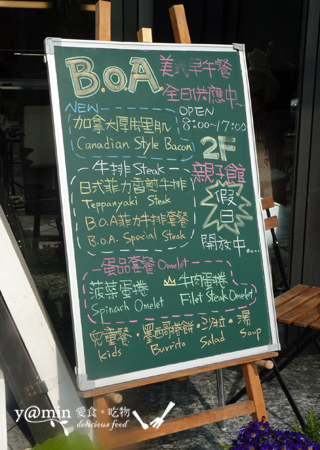 B.O.A.
美式早午餐
全日供應中~
NEW
加拿大厚出里肌
Canadian Style Bacon
OPEN
8:00~17:00
2F
親子館
假日
開放中...
牛排 Steak
日式菲力香煎牛排
Teppanyaki Steak
B.O.A菲力牛排套餐
B.O.A. Special Steak
蛋品套餐 Omelet
菠菜蛋捲
Spinach Omelet
牛肉蛋捲
Filet Steak Omelet
兒童餐・墨西哥捲餅・沙拉・湯
kids Burrito Salad Soup
y@min 愛食。吃物
delicious food